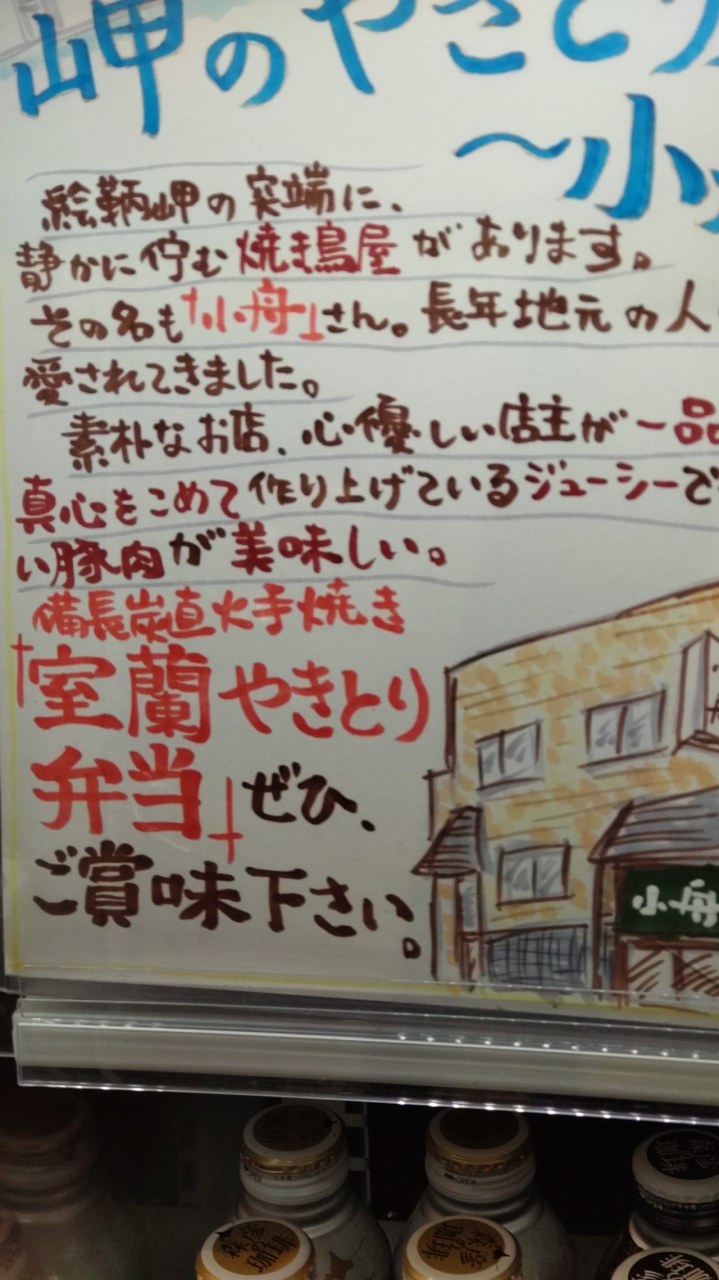 岬のやきとり
～小
絵鞆岬の突端に、
静かに佇む焼き鳥屋があります。
その名も「小舟」さん。長年地元の人
愛されてきました。
素朴なお店、心優しい店主が一品
真心をこめて作り上げているジューシーで
い豚肉が美味しい。
備長炭直火手焼き
「室蘭やきとり
弁当」ぜひ、
ご賞味下さい。
小舟